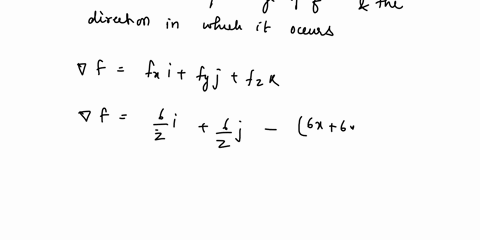 f & the
direction in which it occurs
∇ f = fx i + fy j + fz k
∇ f = 6/z i + 6/z j - (6x + 6